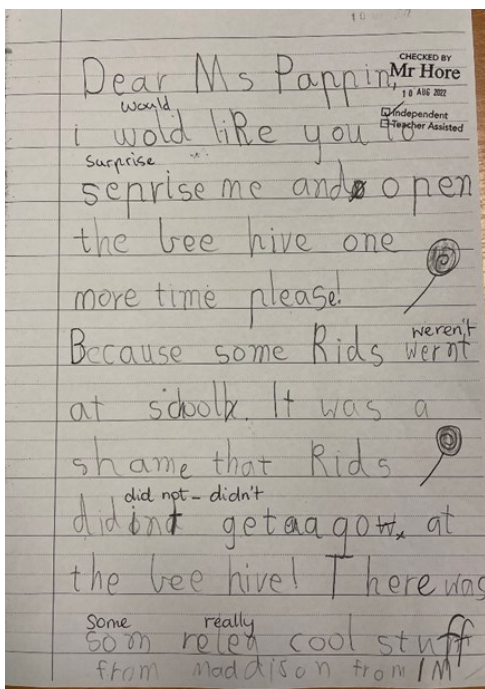 Dear Ms Pappin,
CHECKED BY
Mr Hore
10 AUG 2022
Independent
Teacher Assisted
would
i wold like you to
surprise
seprise me and open
the bee hive one
more time please!
weren't
Because some kids wernt
at school. It was a
shame that kids
did not - didn't
didint get a go at
the bee hive! There was
some really
som reley cool stuff
from maddison from 1M